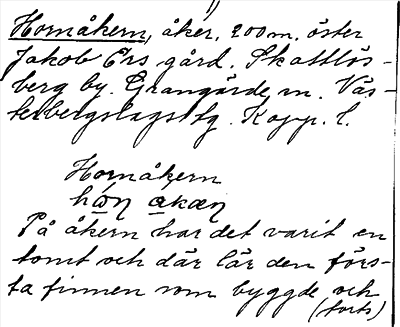 Hornåkern, åker, 200 m. öster
Jakob Ers gård. Skattlös-
berg by. Grangärde sn. Väs-
terbergslags tg. Kopp. l.
Hornåkern
På åkern har det varit en
tomt och där lär den förs-
ta finnen som byggde och
(forts)